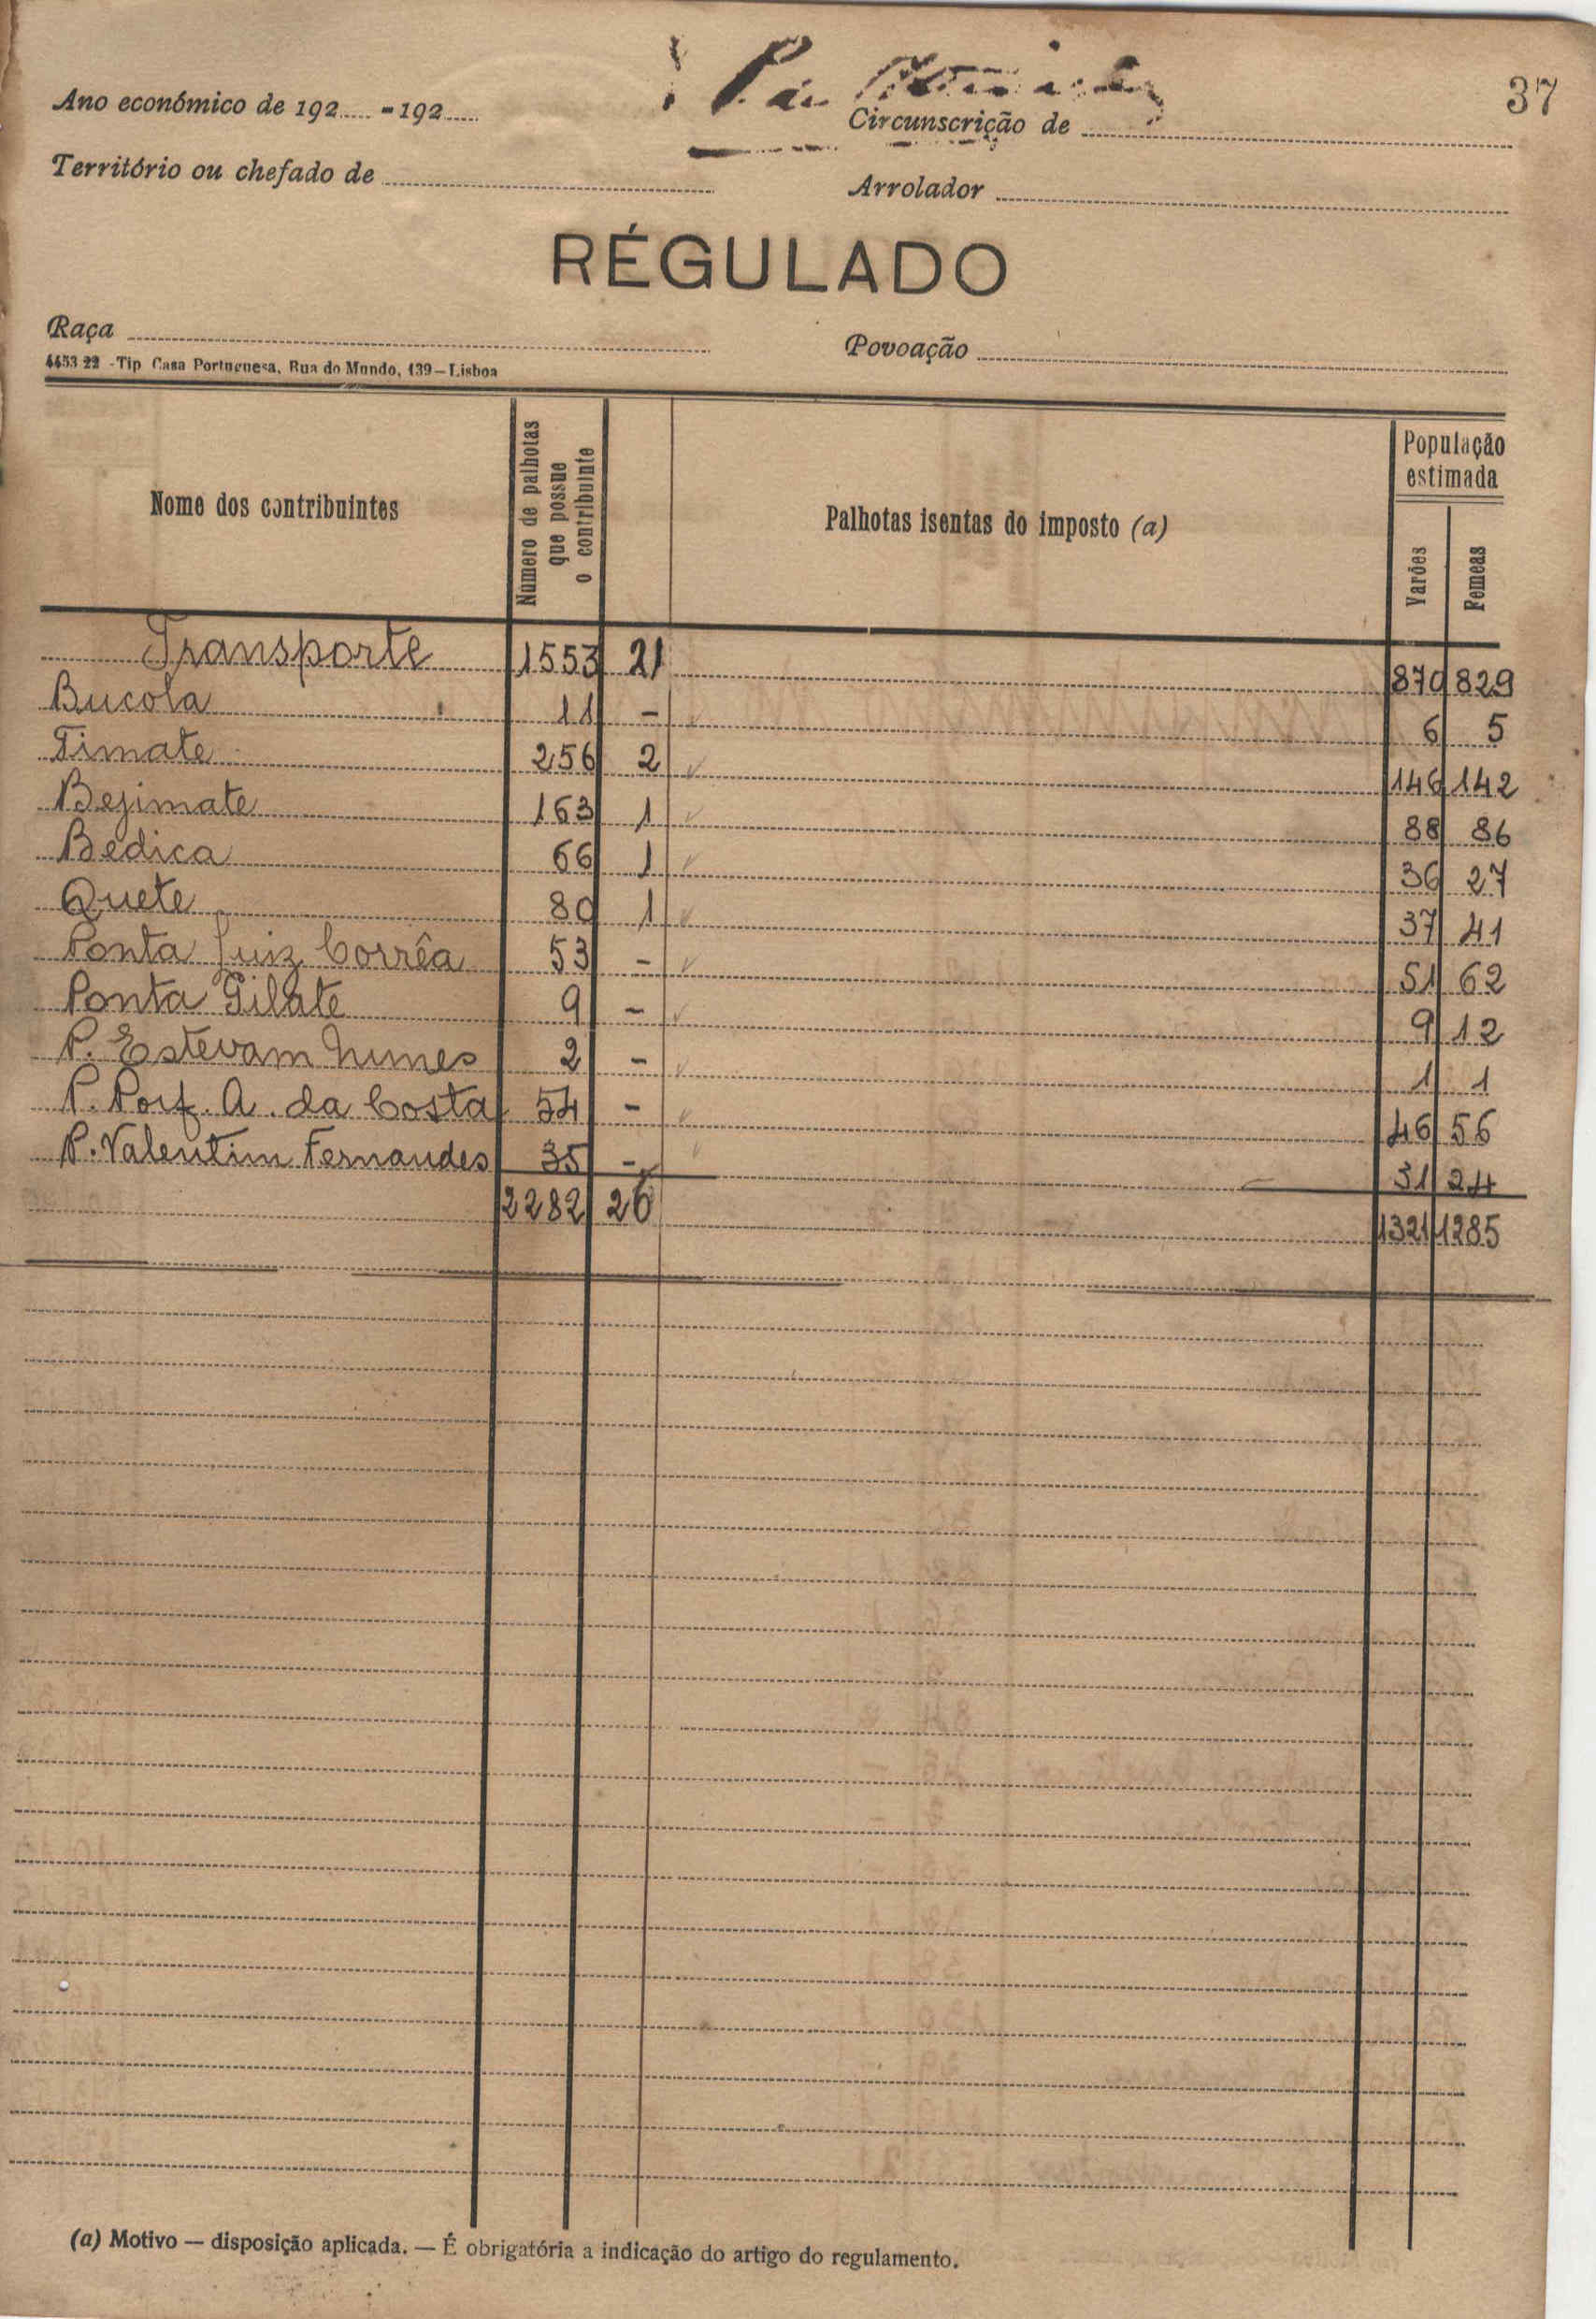 37
Ano económico de 192..... - 192.....
Circunscrição de
Território ou chefado de
Arrolador
RÉGULADO
Raça
Povoação
4453 22 - Tip Casa Portuguesa, Rua do Mundo, 139 – Lisboa
Nome dos contribuintes
Número de palhotas que possue o contribuinte
Palhotas isentas do imposto (a)
População estimada
Varões
Femeas
Transporte 1553 21 870 829
Bucola 11 - 6 5
Timate 256 2 146 142
Bejimate 163 1 88 86
Bedica 66 1 36 27
Quete 80 1 37 41
Ponta Luiz Corrêa 53 - 51 62
Ponta Gilate 9 - 9 12
P. Estevam Nunes 2 - 1 1
P. Porf. A. da Costa 54 - 46 56
P. Valentim Fernandes 35 - 31 24
2282 26 1321 1285
(a) Motivo — disposição aplicada. — É obrigatória a indicação do artigo do regulamento.